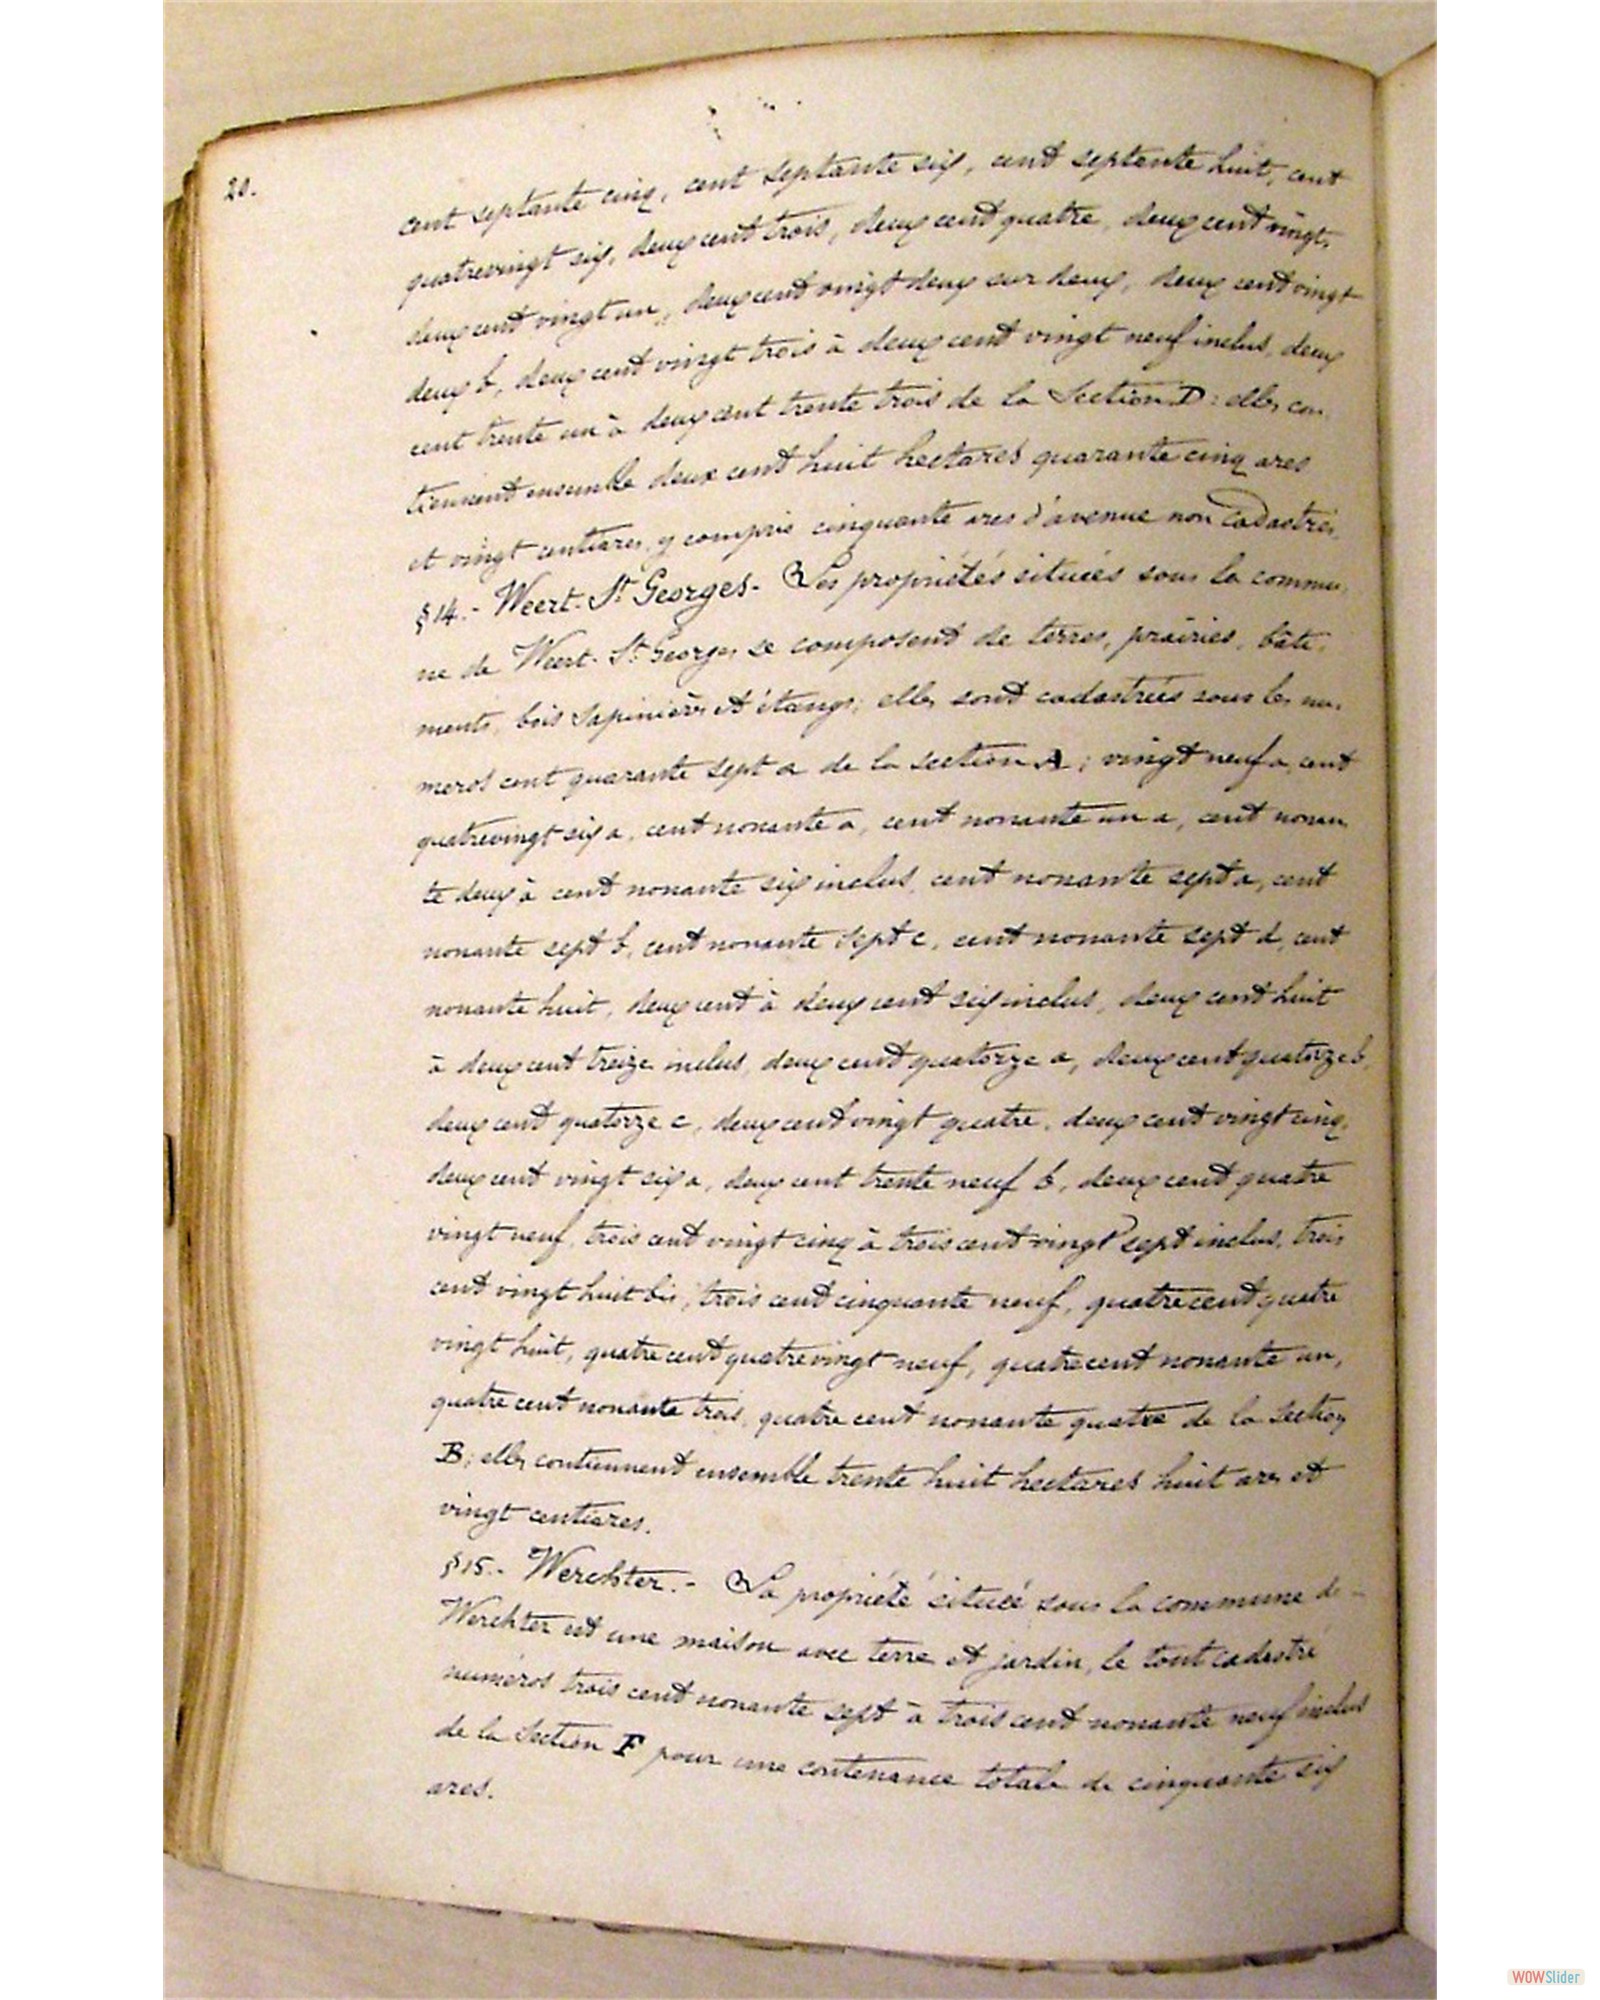 20.
cent septante cinq, cent septante six, cent septante huit, cent
quatrevingt six, deux cent trois, deux cent quatre, deux cent vingt,
deux cent vingt un, deux cent vingt deux sur deux, deux cent vingt
deux b, deux cent vingt trois à deux cent vingt neuf inclus, deux
cent trente un à deux cent trente trois de la Section D : elles con-
tiennent ensemble deux cent huit hectares quarante cinq ares
et vingt centiares, y compris cinquante ares d'avenue non cadastrés.
§14.- Weert-St Georges.- Les propriétés situées sous la commu-
ne de Weert-St Georges se composent de terres, prairies, bâti-
ments, bois sapinières et étangs; elles sont cadastrées sous les nu-
meros cent quarante sept a de la section A; vingt neuf a, cent
quatrevingt six a, cent nonante a, cent nonante un a, cent nonan
te deux à cent nonante six inclus, cent nonante sept a, cent
nonante sept b, cent nonante sept c, cent nonante sept d, cent
nonante huit, deux cent à deux cent six inclus, deux cent huit
à deux cent treize inclus, deux cent quatorze a, deux cent quatorze b,
deux cent quatorze c, deux cent vingt quatre, deux cent vingt cinq,
deux cent vingt six a, deux cent trente neuf b, deux cent quatre
vingt neuf, trois cent vingt cinq à trois cent vingt sept inclus, trois
cent vingt huit bis, trois cent cinquante neuf, quatre cent quatre
vingt huit, quatre cent quatrevingt neuf, quatre cent nonante un,
quatre cent nonante trois, quatre cent nonante quatre de la Section
B; elles contiennent ensemble trente huit hectares huit ares et
vingt centiares.
§15.- Werchter.- La propriété située sous la commune de -
Werchter est une maison avec terre et jardin, le tout cadastré
numéros trois cent nonante sept à trois cent nonante neuf inclus
de la Section F pour une contenance totale de cinquante six
ares.
WOWSlider